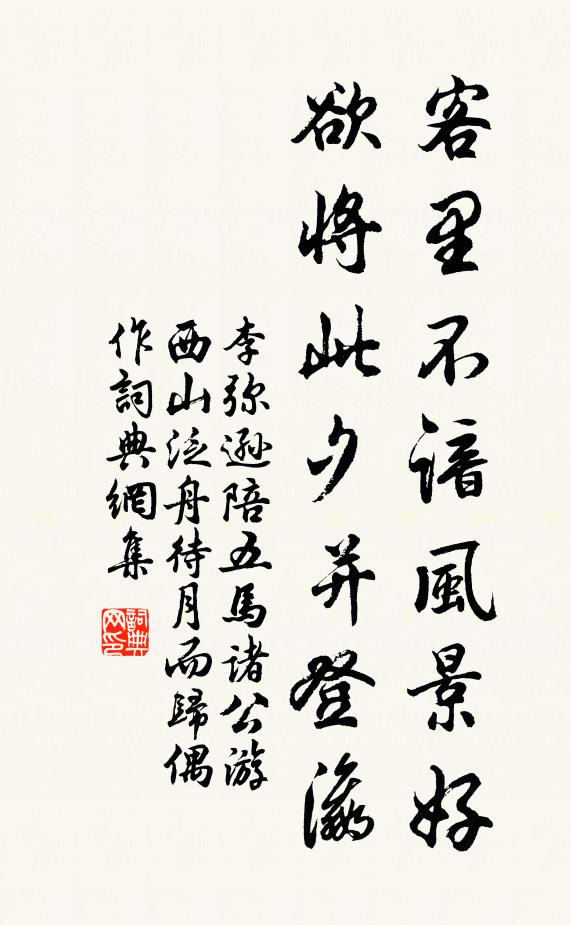 客里不諳風景好
欲將此夕并登瀛
李弥遜陪五馬諸公游
西山泛舟待月而歸偶
作詞典網集
詞典
网印